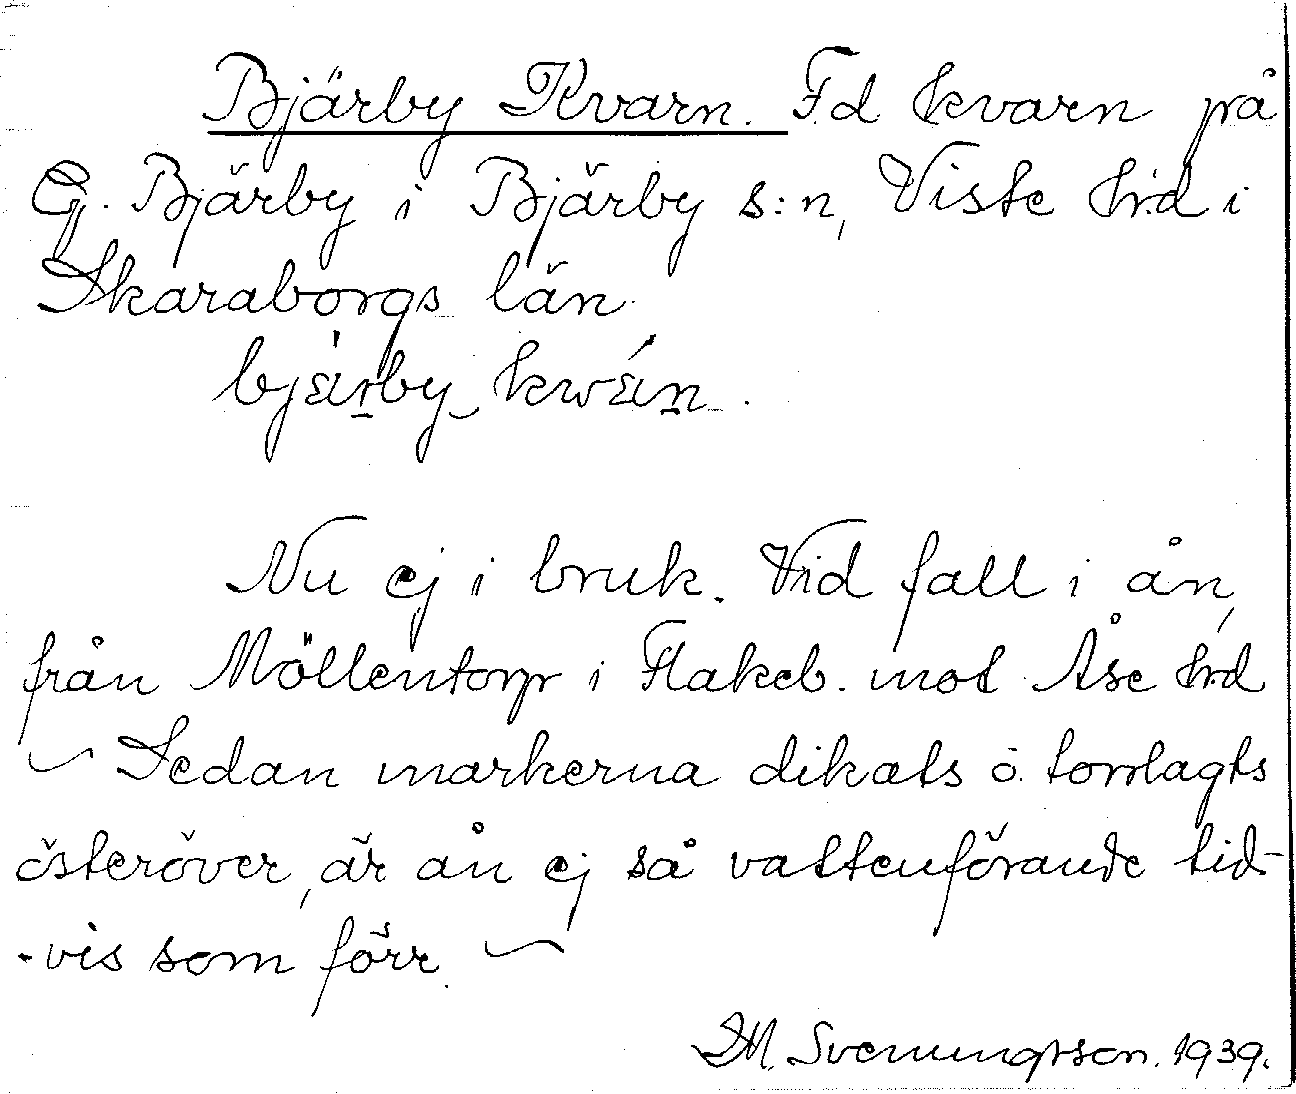 Bjärby Kvarn. F.d kvarn på
G. Bjärby i Bjärby s:n, Viste hrd i
Skaraborgs län.
Nu ej i bruk. Vid fall i ån,
från Möllentorp i Flakeb. mot Åse hrd
~ Sedan markerna dikats o. torrlagts
österöver, är ån ej så vattenförande tid-
-vis som förr. ~
M. Svenungsson. 1939.